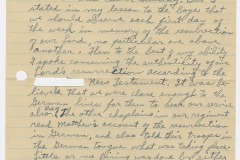 stated in my lesson to the boys that
we should observe each first day of
the week in memory of the resurrection
of our Lord, no path clear one above
another. Then to the best of my ability
I spoke concerning the authenticity of our
Lord's resurrection according to the
New Testament. It was be-
lieved that we were close enough to the
German lines for them to hear our service
also. The other chaplains in our regiment
read Matthew's account of the resurrection
in German, and also told their troops, in
the German tongue what was taking place.
Little or no firing was done by either